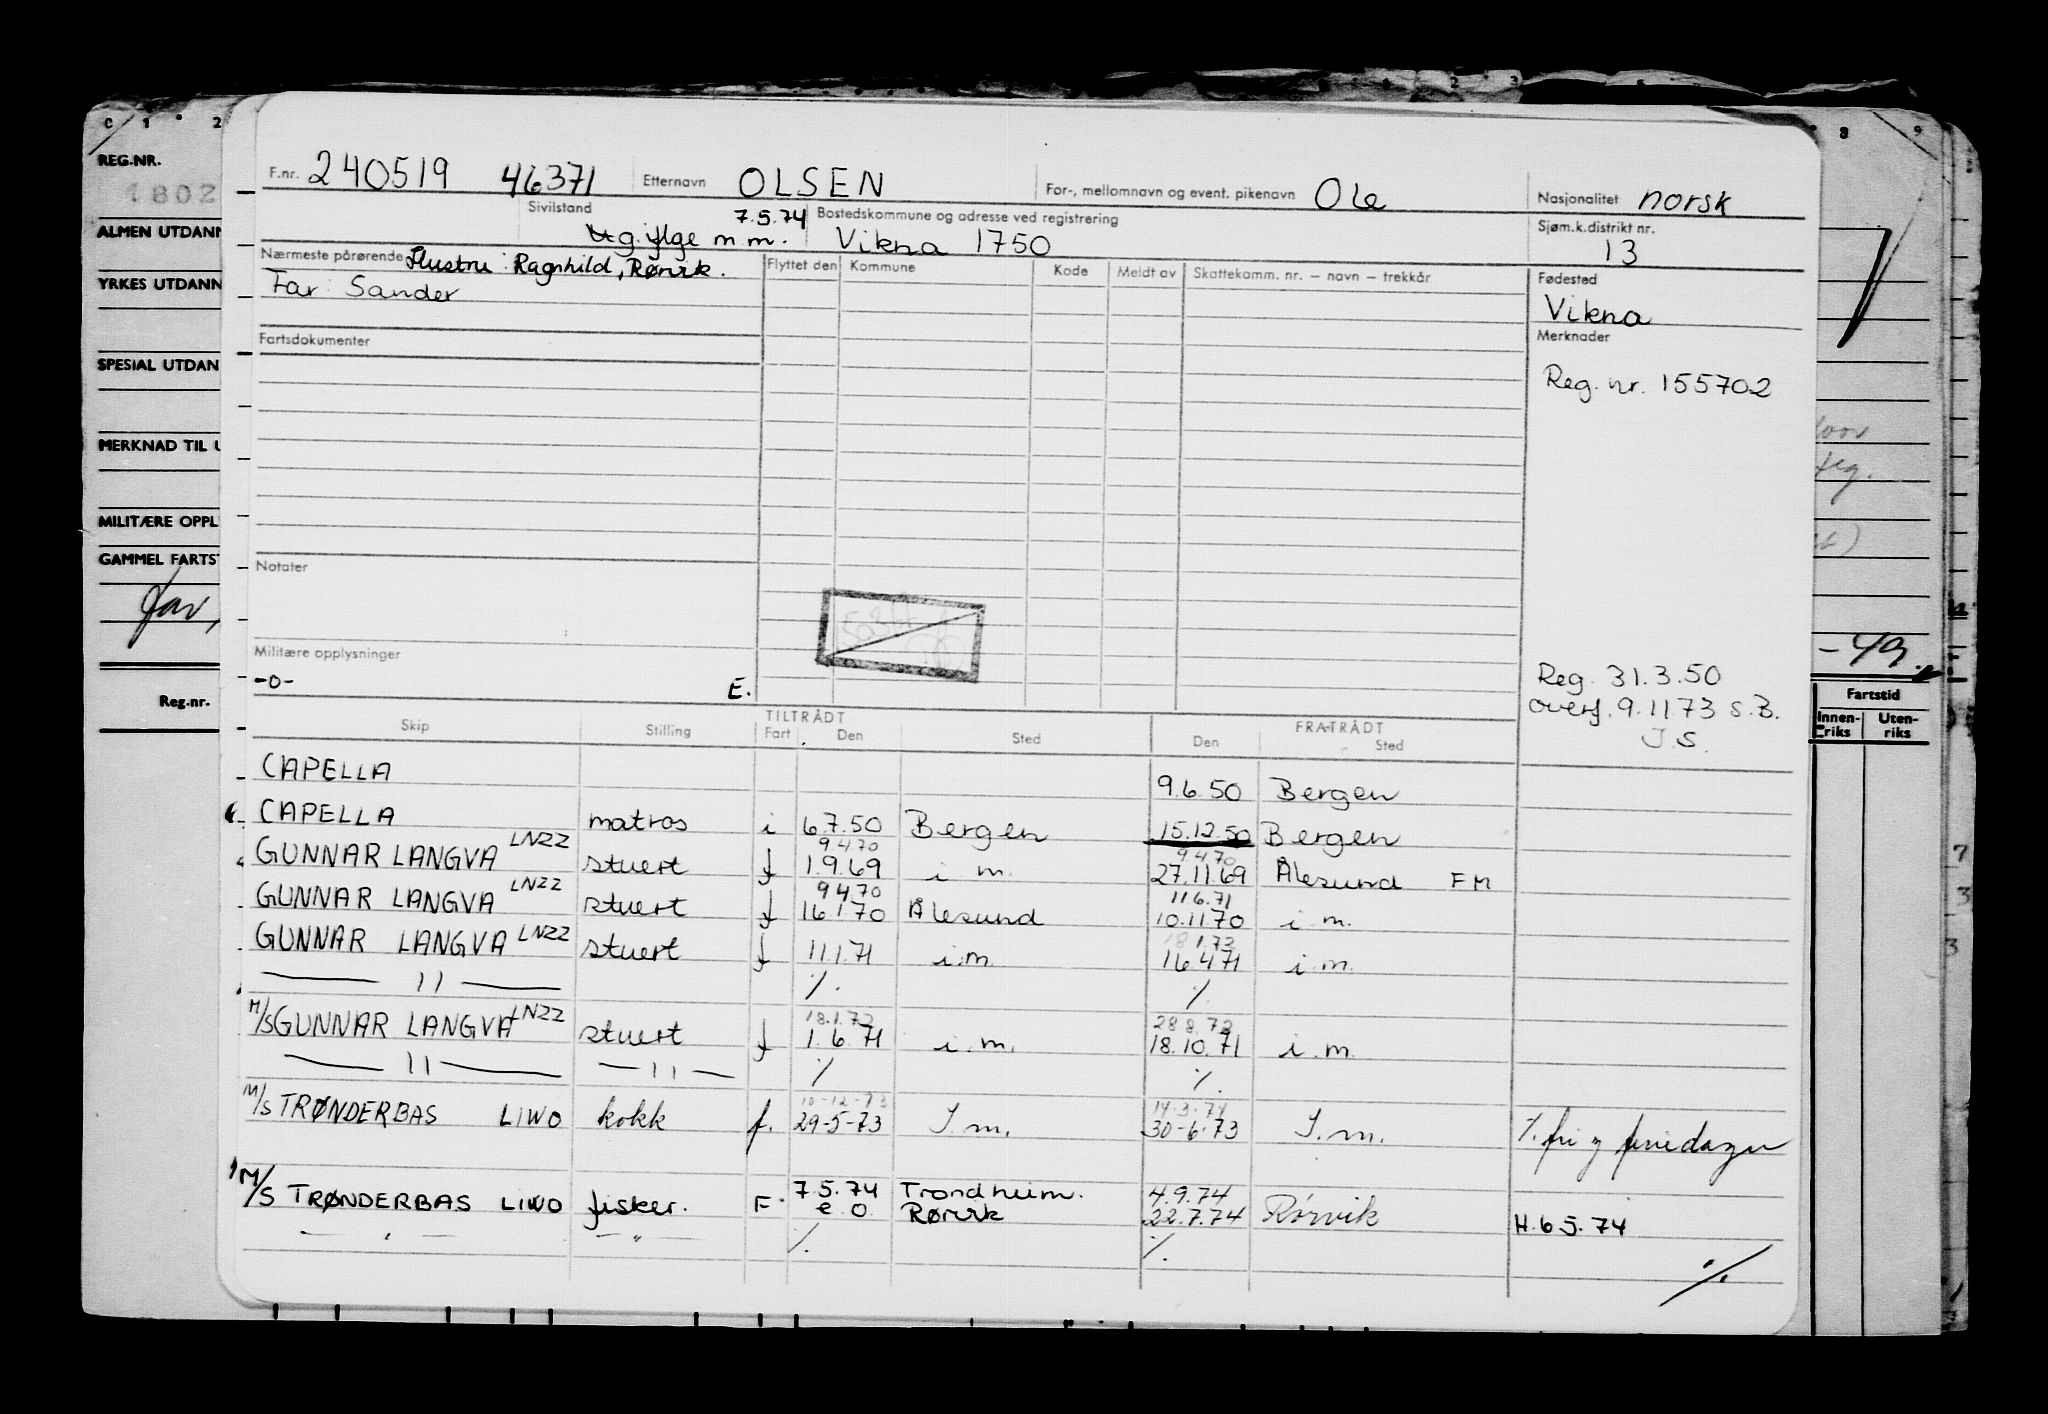 C 1 2 8 9
REG.NR.
1802
ALMEN UTDANN
YRKES UTDANN
SPESIAL UTDAN
MERKNAD TIL U
MILITÆRE OPPL
GAMMEL FARTST
far,
Reg.nr.
F.nr. 240519 46371 Etternavn OLSEN For-, mellomnavn og event. pikenavn Ole Nasjonalitet norsk
Sivilstand 7.5.74 Bostedskommune og adresse ved registrering Sjøm.k.distrikt nr.
Ug. iflge m.m. Vikna 1750 13
Nærmeste pårørende Hustru: Ragnhild, Rørvik. Flyttet den Kommune Kode Meldt av Skattekomm. nr. – navn – trekkår Fødested
Far: Sander Vikna
Fartsdokumenter Merknader
Reg. nr. 155702
Notater
Militære opplysninger
-0- E.
Reg. 31.3.50
overf. 9.11.73 S.B.
J.S.
-49.
Fartstid
Innen-riks Uten-riks
TILTRÅDT FRATRÅDT
Skip Stilling Fart Den Sted Den Sted
CAPELLA 9.6.50 Bergen
CAPELLA matros i 6.7.50 Bergen 15.12.50 Bergen
9.4.70 9.4.70
GUNNAR LANGVA LNZZ stuert f 1.9.69 i m. 27.11.69 Ålesund FM
9.4.70 11.6.71
GUNNAR LANGVA LNZZ stuert f 16.1.70 Ålesund 10.11.70 i.m.
18.1.72
GUNNAR LANGVA LNZZ stuert f 11.1.71 i.m. 16.4.71 i.m.
— 11 — %. %.
18.1.72 28.8.72
M/S GUNNAR LANGVA LNZZ stuert f 1.6.71 i.m. 18.10.71 i.m.
— 11 — — 11 — % %.
10-12-73 14.3.74
M/S TRØNDERBAS LIWO kokk f. 29-5-73 I.m. 30-6-73 I.m. %. fri
7.5.74 Trondheim. 4.9.74
M/S TRØNDERBAS LIWO fisker. F. e.o. Rørvik 22.7.74 Rørvik H.6.5.74
— " — — " — %. %. %